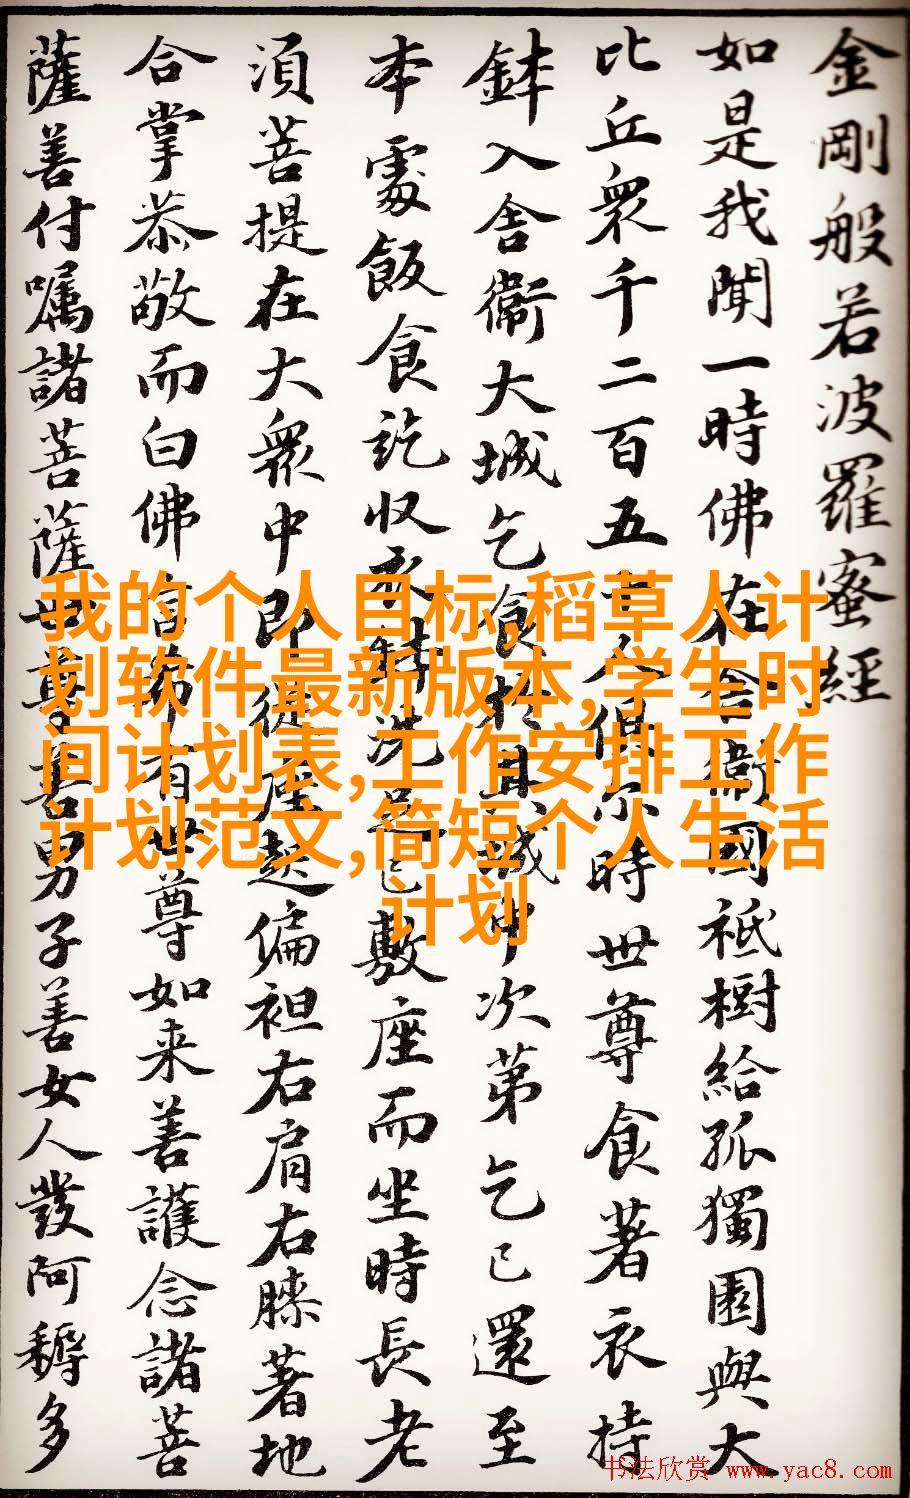 金剛般若波羅蜜經
如是我聞一時佛在舍衞國祇樹給孤獨園與大
比丘衆千二百五十人俱尔時世尊食著衣持
鉢入舍衞大城乞食於其城中次第乞已還至
本處飯食訖收衣鉢洗足已敷座而坐時長老
須菩提在大衆中即從座起偏袒右肩右膝著地
合掌恭敬而白佛言希有世尊如来善護念諸菩
薩善付囑諸菩薩世尊善男子善女人發阿耨多
我的个人目标,稻草人计
划软件最新版本,学生时
间计划表,工作安排工作
计划范文,简短个人生活
计划
书法欣赏 www.yac8.com